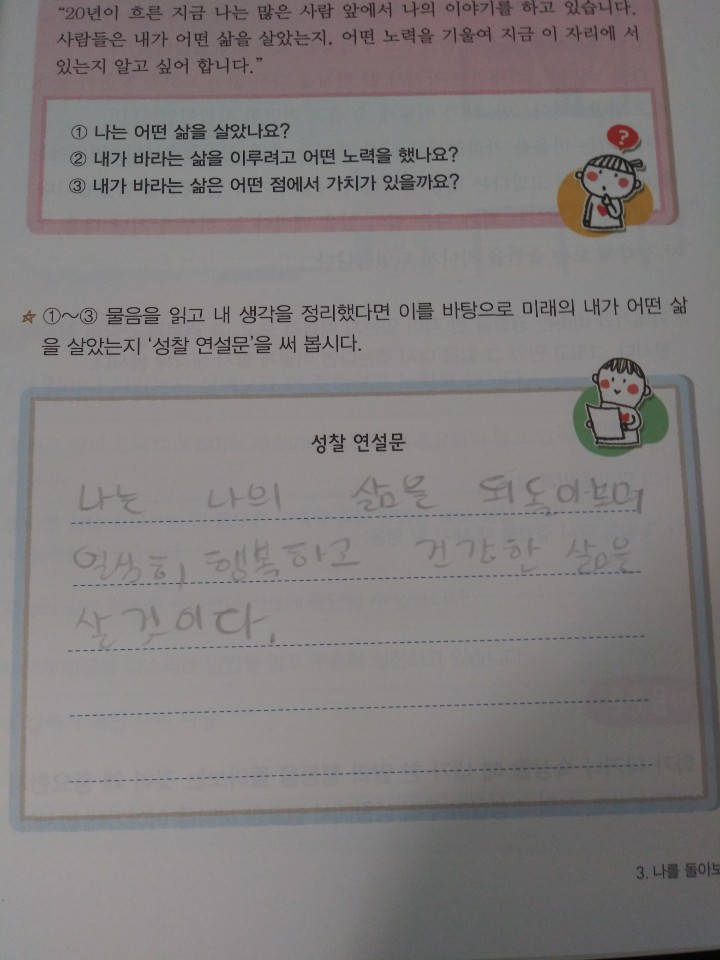 “20년이 흐른 지금 나는 많은 사람 앞에서 나의 이야기를 하고 있습니다.
사람들은 내가 어떤 삶을 살았는지, 어떤 노력을 기울여 지금 이 자리에 서
있는지 알고 싶어 합니다.”
① 나는 어떤 삶을 살았나요?
② 내가 바라는 삶을 이루려고 어떤 노력을 했나요?
③ 내가 바라는 삶은 어떤 점에서 가치가 있을까요?
?
☆ ①～③ 물음을 읽고 내 생각을 정리했다면 이를 바탕으로 미래의 내가 어떤 삶
을 살았는지 ‘성찰 연설문’을 써 봅시다.
성찰 연설문
나는 나의 삶을 되돌아보며
열심히, 행복하고 건강한 삶을
살 것이다.
3. 나를 돌아보